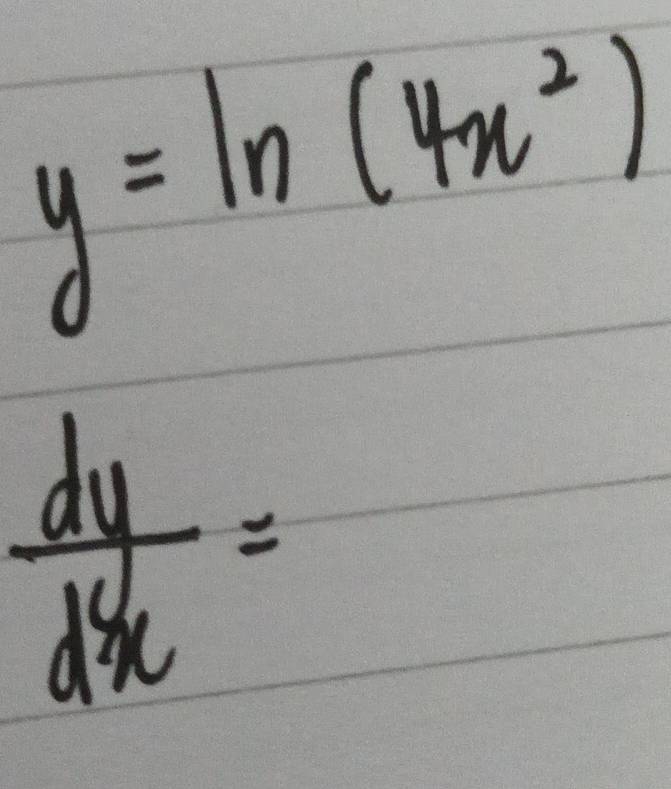 y = ln (4x²)
dy/dx =